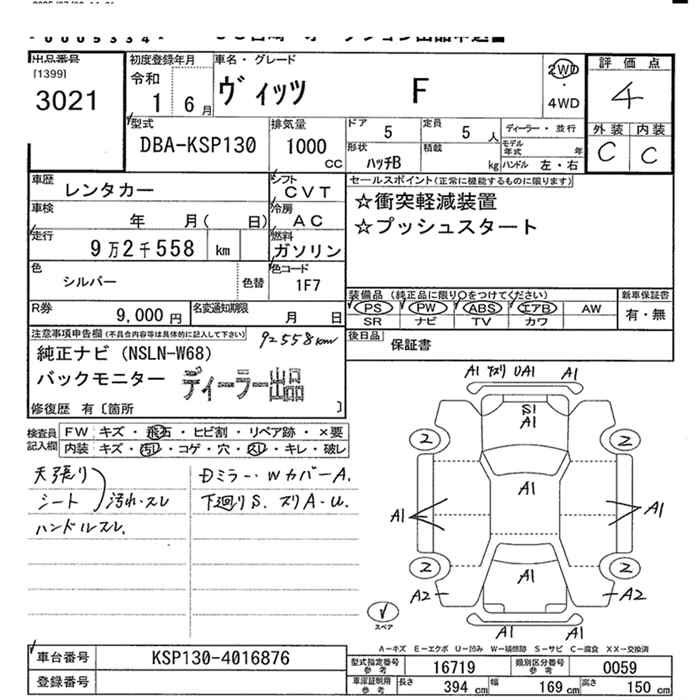 出品番号
[1399]
3021
初度登録年月
令和
1 6月
車名・グレード
ヴィッツ F
2WD
・
4WD
評価点
4
外装 内装
C C
型式
DBA-KSP130
排気量
1000
CC
ドア
5
定員
5 人
ディーラー・並行
形状
ハッチB
積載
kg
モデル年式
年
ハンドル 左・右
車歴
レンタカー
シフト
CVT
車検
年 月( 日)
冷房
AC
走行
9万2千558 km
燃料
ガソリン
色
シルバー
色替
色コード
1F7
セールスポイント(正常に機能するものに限ります)
☆衝突軽減装置
☆プッシュスタート
R券
9,000 円
名変通知期限
月 日
装備品 (純正品に限り○をつけてください)
PS PW ABS エアB AW
SR ナビ TV カワ
新車保証書
有・無
後日品
保証書
注意事項申告欄(不具合内容等は具体的に記入して下さい)
92558km
純正ナビ (NSLN-W68)
バックモニター
ディーラー出品
修復歴 有〔箇所 〕
検査員
記入欄
FW キズ・飛石・ヒビ割・リペア跡・×要
内装 キズ・汚レ・コゲ・穴・スレ・キレ・破レ
天張り
シート
汚れ・スレ
ハンドルスレ
Dミラー・WカバーA.
下廻りS. ズリA・U.
A1 ズリ UA1 A1
S1
A1
2 2
A1
A1 A1
2 2
A1
A2 A2
A1 A1
スペア
A-キズ E-エクボ U-凹み W-補修跡 S-サビ C-腐食 XX-交換済
車台番号
KSP130-4016876
登録番号
型式指定番号
参考
16719
類別区分番号
参考
0059
車庫証明用
参考
長さ 394 cm
幅 169 cm
高さ 150 cm